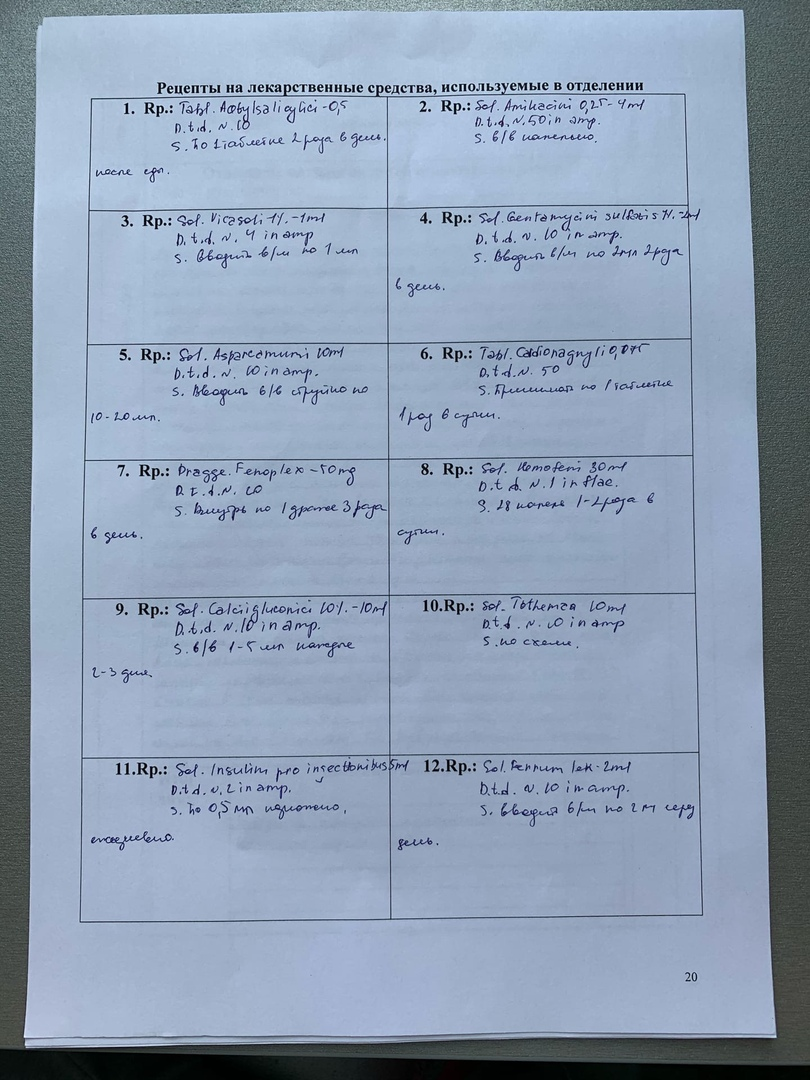 Рецепты на лекарственные средства, используемые в отделении
1. Rp.: Tabl. Acetylsalicylici - 0,5
D.t.d. N. 10
S. По 1 таблетке 2 раза в день.
после еды.
2. Rp.: Sol. Amikacini 0,25 - 4ml
D.t.d. N. 50 in amp.
S. в/в капельно.
3. Rp.: Sol. Vicasoli 1% - 1ml
D.t.d. N. 4 in amp
S. Вводить в/м по 1 мл
4. Rp.: Sol. Gentamycini sulfatis - 2ml
D.t.d. N. 10 in amp.
S. Вводить в/м по 2мл 2 раза
в день.
5. Rp.: Sol. Asparcamini 10ml
D.t.d. N. 10 in amp.
S. Вводить в/в струйно по
10-20 мл.
6. Rp.: Tabl. Cardiomagnyli 0,075
D.t.d. N. 50
S. Принимать по 1 таблетке
1 раз в сутки.
7. Rp.: Dragge. Fenoplex - 50 mg
D.t.d. N.
S. Внутрь по 1 драже 3 раза
в день.
8. Rp.: Sol. Hemoferi 30ml
D.t.d. N. 1 in flac.
S. 28 капель 1-2 раза в
сутки.
9. Rp.: Sol. Calcii gluconici 10% - 10ml
D.t.d. N. 10 in amp.
S. в/в 1-5 мл каждые
2-3 дня.
10.Rp.: Sol. Tothemza 10ml
D.t.d. N. 10 in amp
S. по схеме.
11.Rp.: Sol. Insulini pro insectionibus 5ml
D.t.d. N. 2 in amp.
S. По 0,5 мл подкожно,
ежедневно.
12.Rp.: Sol. Ferrum lek - 2ml
D.t.d. N. 10 in amp.
S. Вводить в/м по 2 м через
день.
20